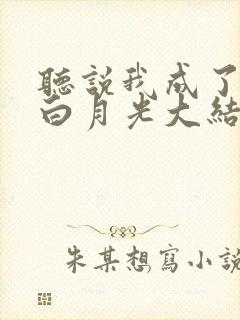 聽說我成了
白月光大結
朱某想寫小說